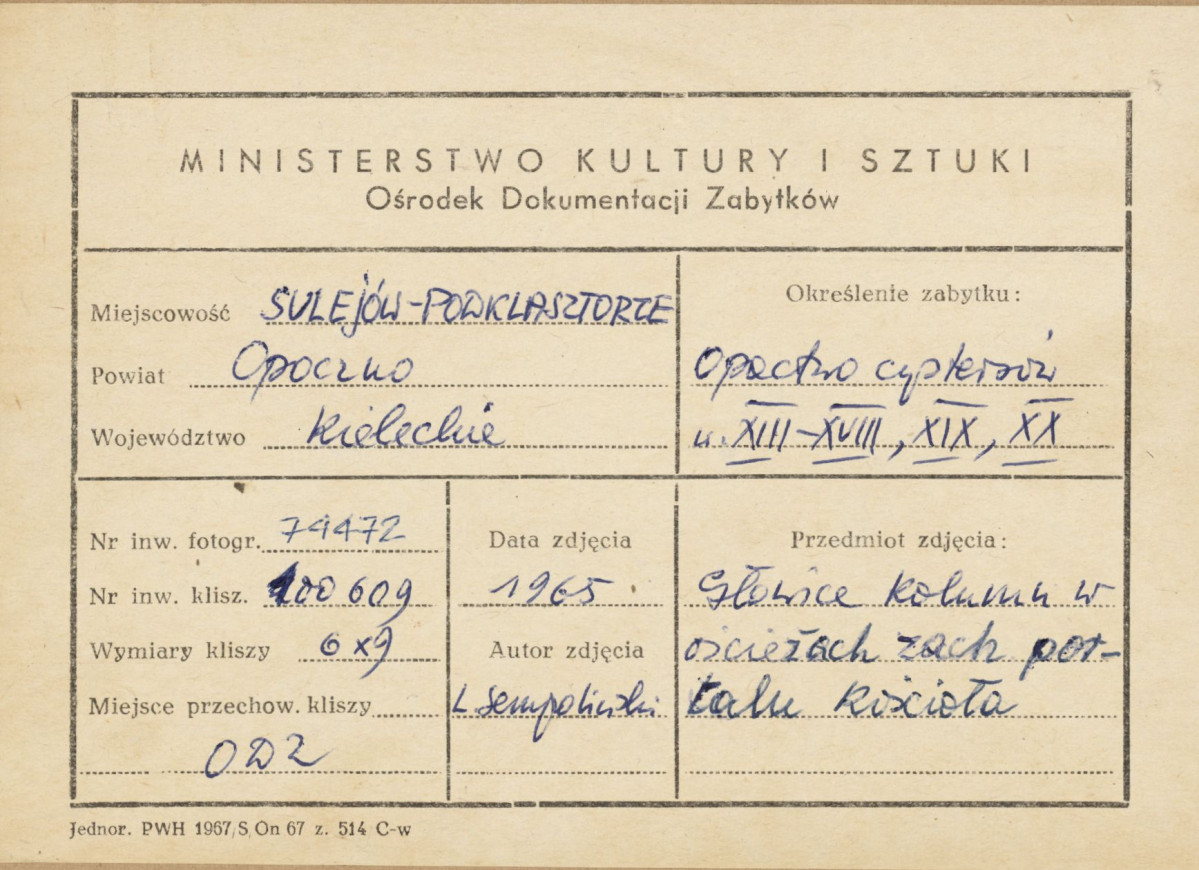 MINISTERSTWO KULTURY I SZTUKI
Ośrodek Dokumentacji Zabytków
Miejscowość SULEJÓW-PODKLASZTORZE
Powiat Opoczno
Województwo Kieleckie
Określenie zabytku:
Opactwo cystersów
w. XIII-XVIII, XIX, XX
Nr inw. fotogr. 74472
Nr inw. klisz. 100609
Wymiary kliszy 6x9
Miejsce przechow. kliszy
ODZ
Data zdjęcia
1965
Autor zdjęcia
L Sempoliński
Przedmiot zdjęcia:
Głowice kolumn w
ościeżach zach por-
talu kościoła
Jednor. PWH 1967/S On 67 z. 514 C-w